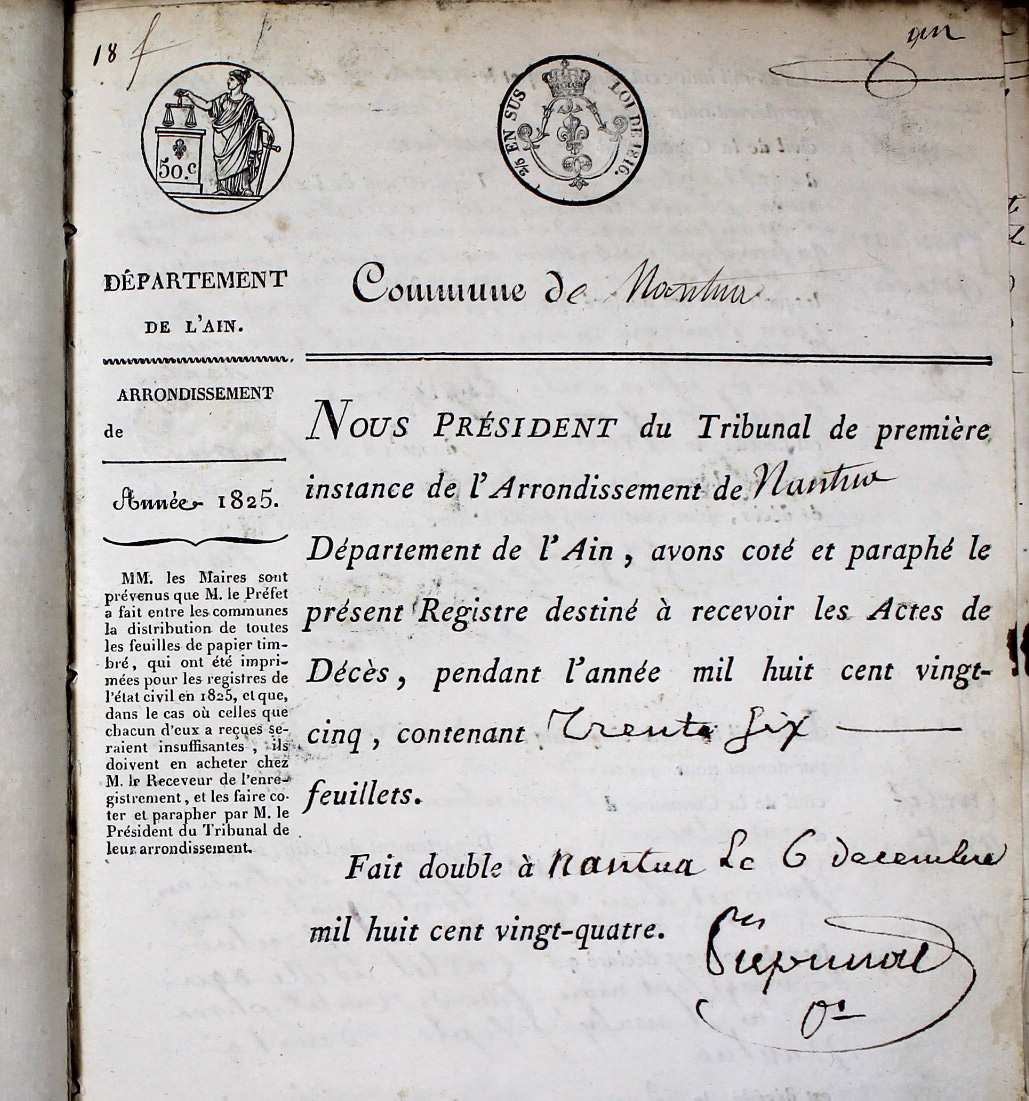 18
50.c
2/5 EN SUS
LOI DE 1816.
DÉPARTEMENT
DE L'AIN.
ARRONDISSEMENT
de
Année 1825.
MM. les Maires sont
prévenus que M. le Préfet
a fait entre les communes
la distribution de toutes
les feuilles de papier tim-
bré, qui ont été impri-
mées pour les registres de
l'état civil en 1825, et que,
dans le cas où celles que
chacun d'eux a reçues se-
raient insuffisantes, ils
doivent en acheter chez
M. le Receveur de l'enre-
gistrement, et les faire co-
ter et parapher par M. le
Président du Tribunal de
leur arrondissement.
Commune de Nantua
NOUS PRÉSIDENT du Tribunal de première
instance de l'Arrondissement de Nantua
Département de l'Ain, avons coté et paraphé le
présent Registre destiné à recevoir les Actes de
Décès, pendant l'année mil huit cent vingt-
cinq, contenant Trente Six
feuillets.
Fait double à nantua Le 6 decembre
mil huit cent vingt-quatre.